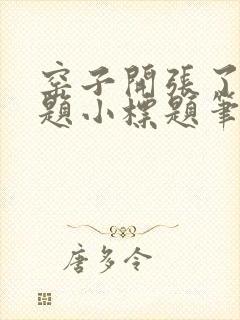 窑子開張了
題小標題筆
唐多令